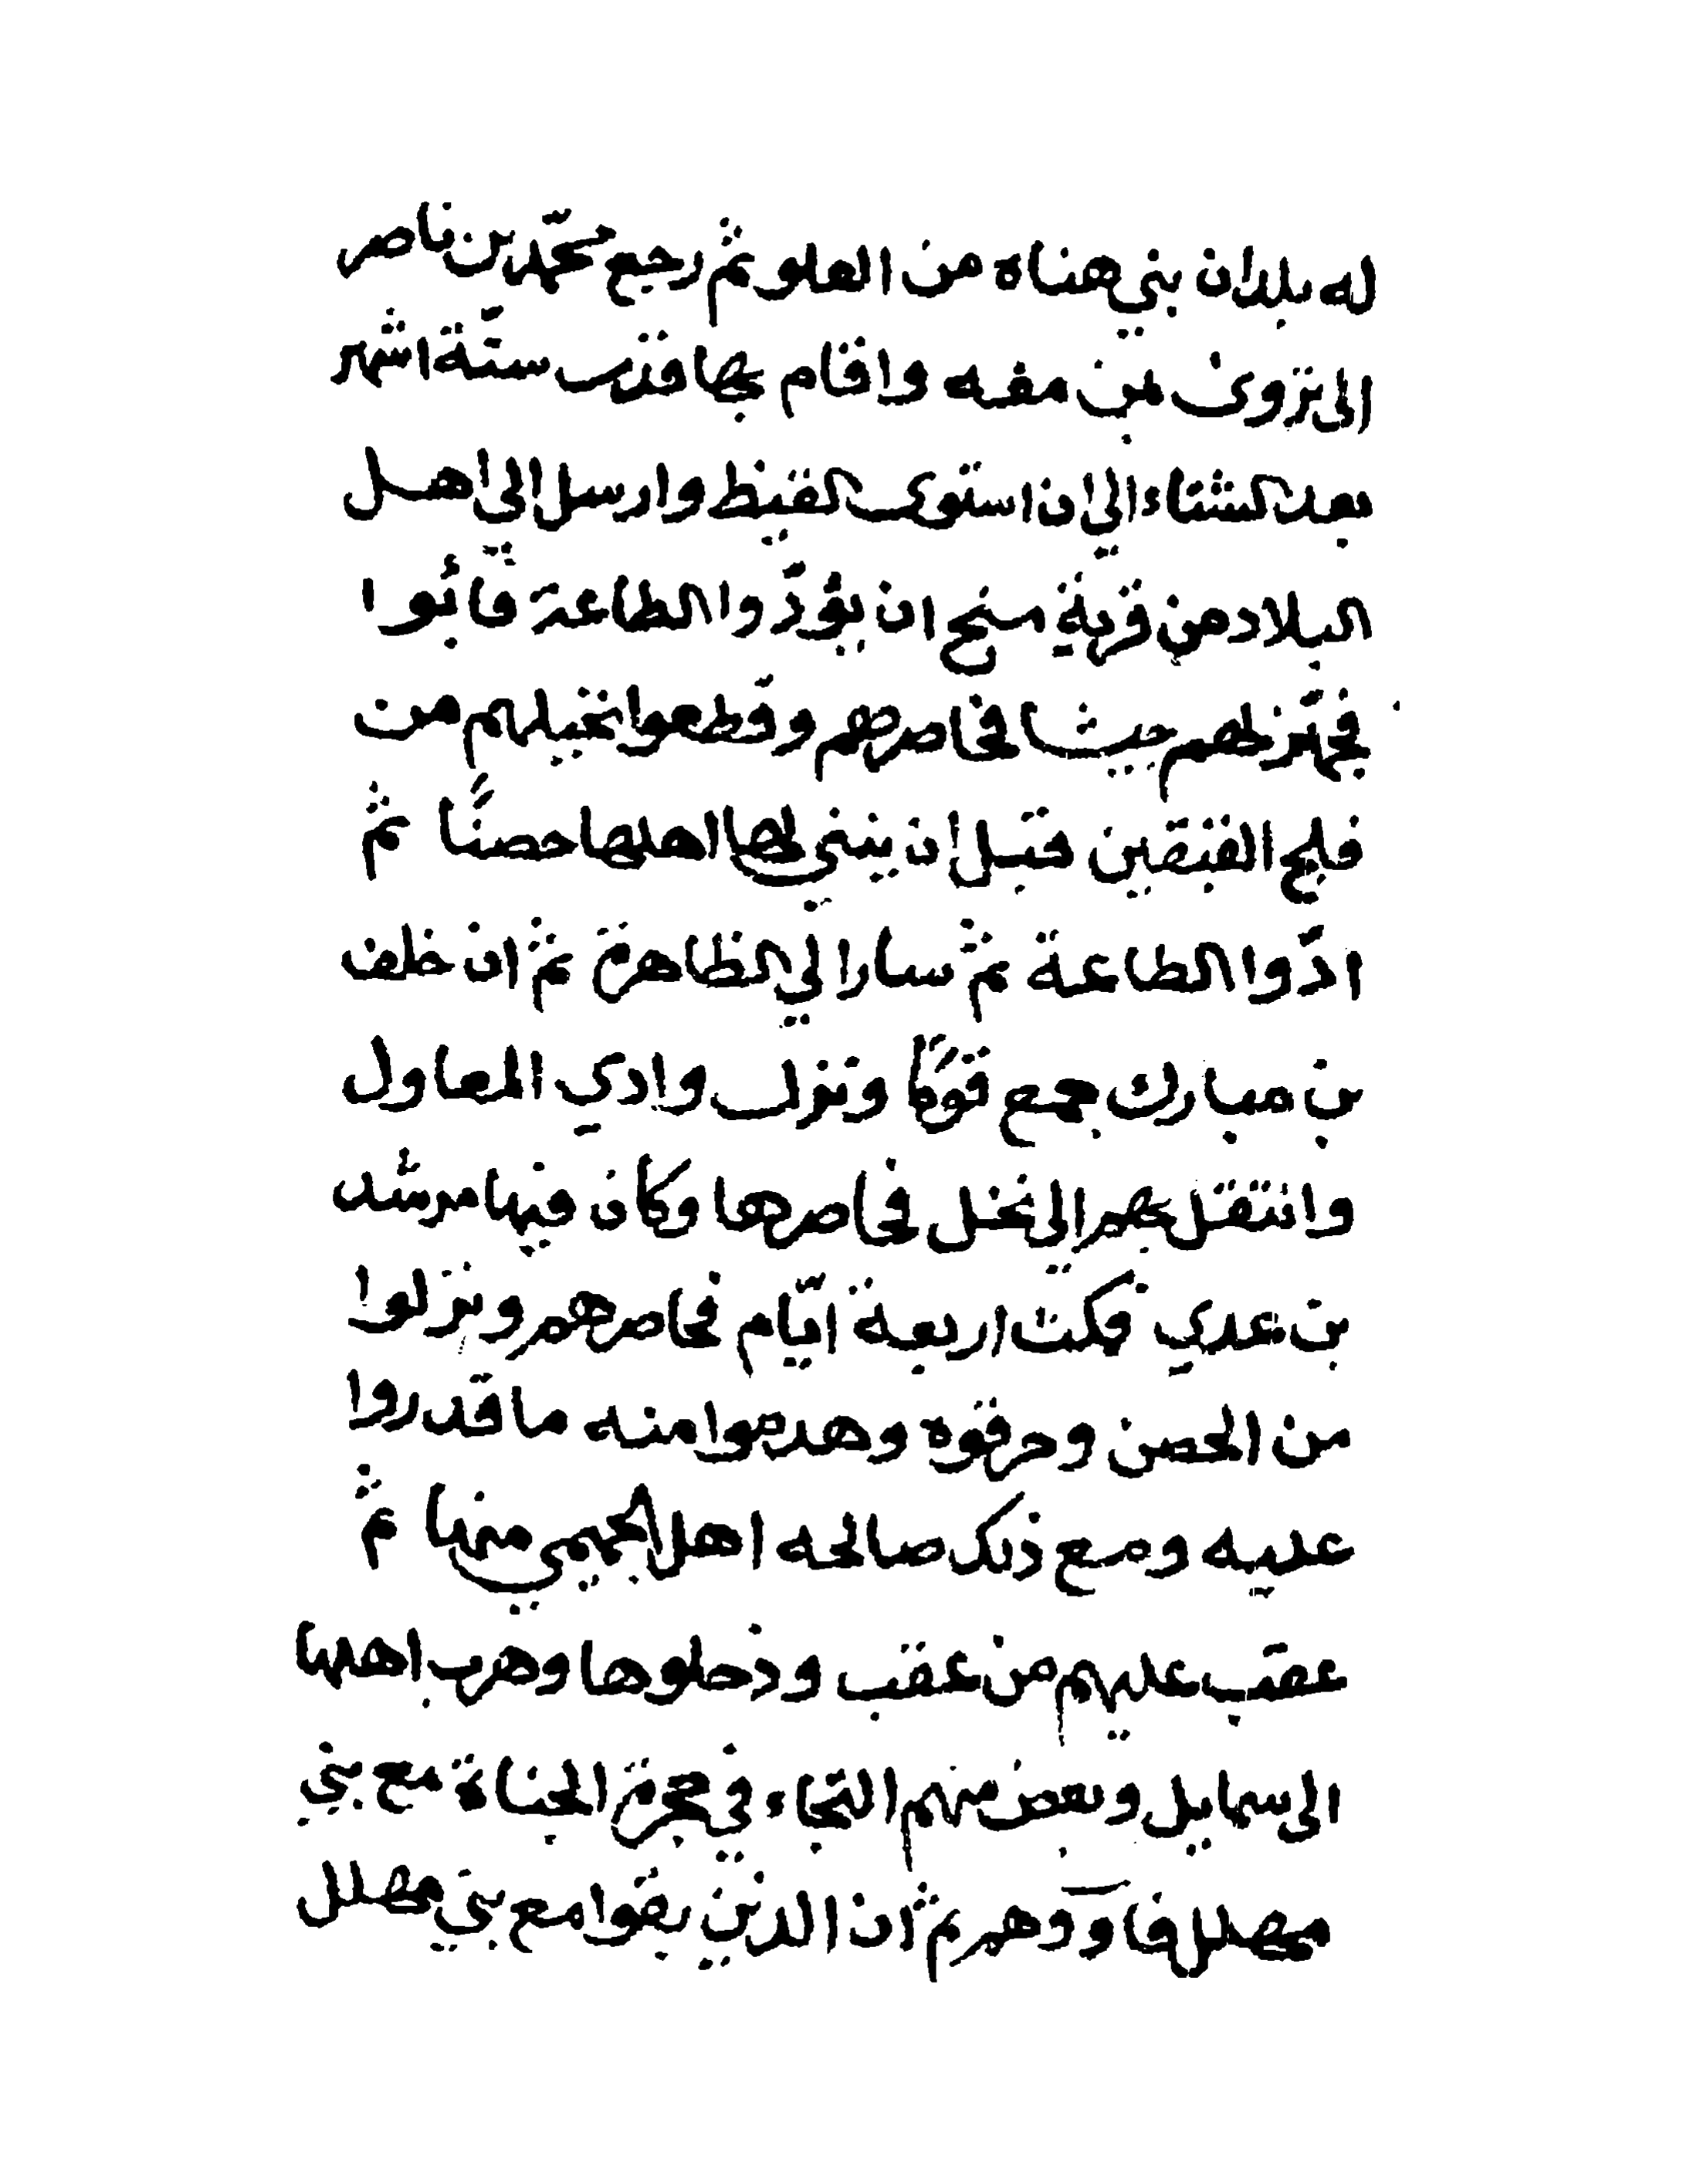 له بلدان بني هناه من العلو ثم رجيع محمّد بن ناصر
الى نزوى من مفه واقام بها قدر ستّة اشهر
بعد الشتاء الي ان استوى القيظ وارسل الي اهل
البلاد من قرية منح ان يؤدّوا الطاعة فأبوا
فجهّز لهم جيشا فحاصرهم وقطعوا نخيلهم من
فلج الفيقين قبل ان يبني لها اهلها حصنًا ثم
ادّوا الطاعة ثم سارا لي الظاهرة ثم ان خلف
بن مبارك جمع قومًا ونزل وادي المعاول
وانتقل بهم الي نخل فحاصرها وكان فيها مرشد
بن عدي فمكث اربعة ايّام فحاصرهم ونزلوا
من الحصن وحرقوه وهدموا منه ما قدروا
عليه ومع ذلك صالحه اهل الجميمي منها ثم
عقب عليهم من عقب ودخلوها وهرب اهلها
الى سمايل وبعض منهم التجاء في حجرة الجناة مع بني
مهلل فآووهم ثم ان الذين بقوا مع بني مهلل